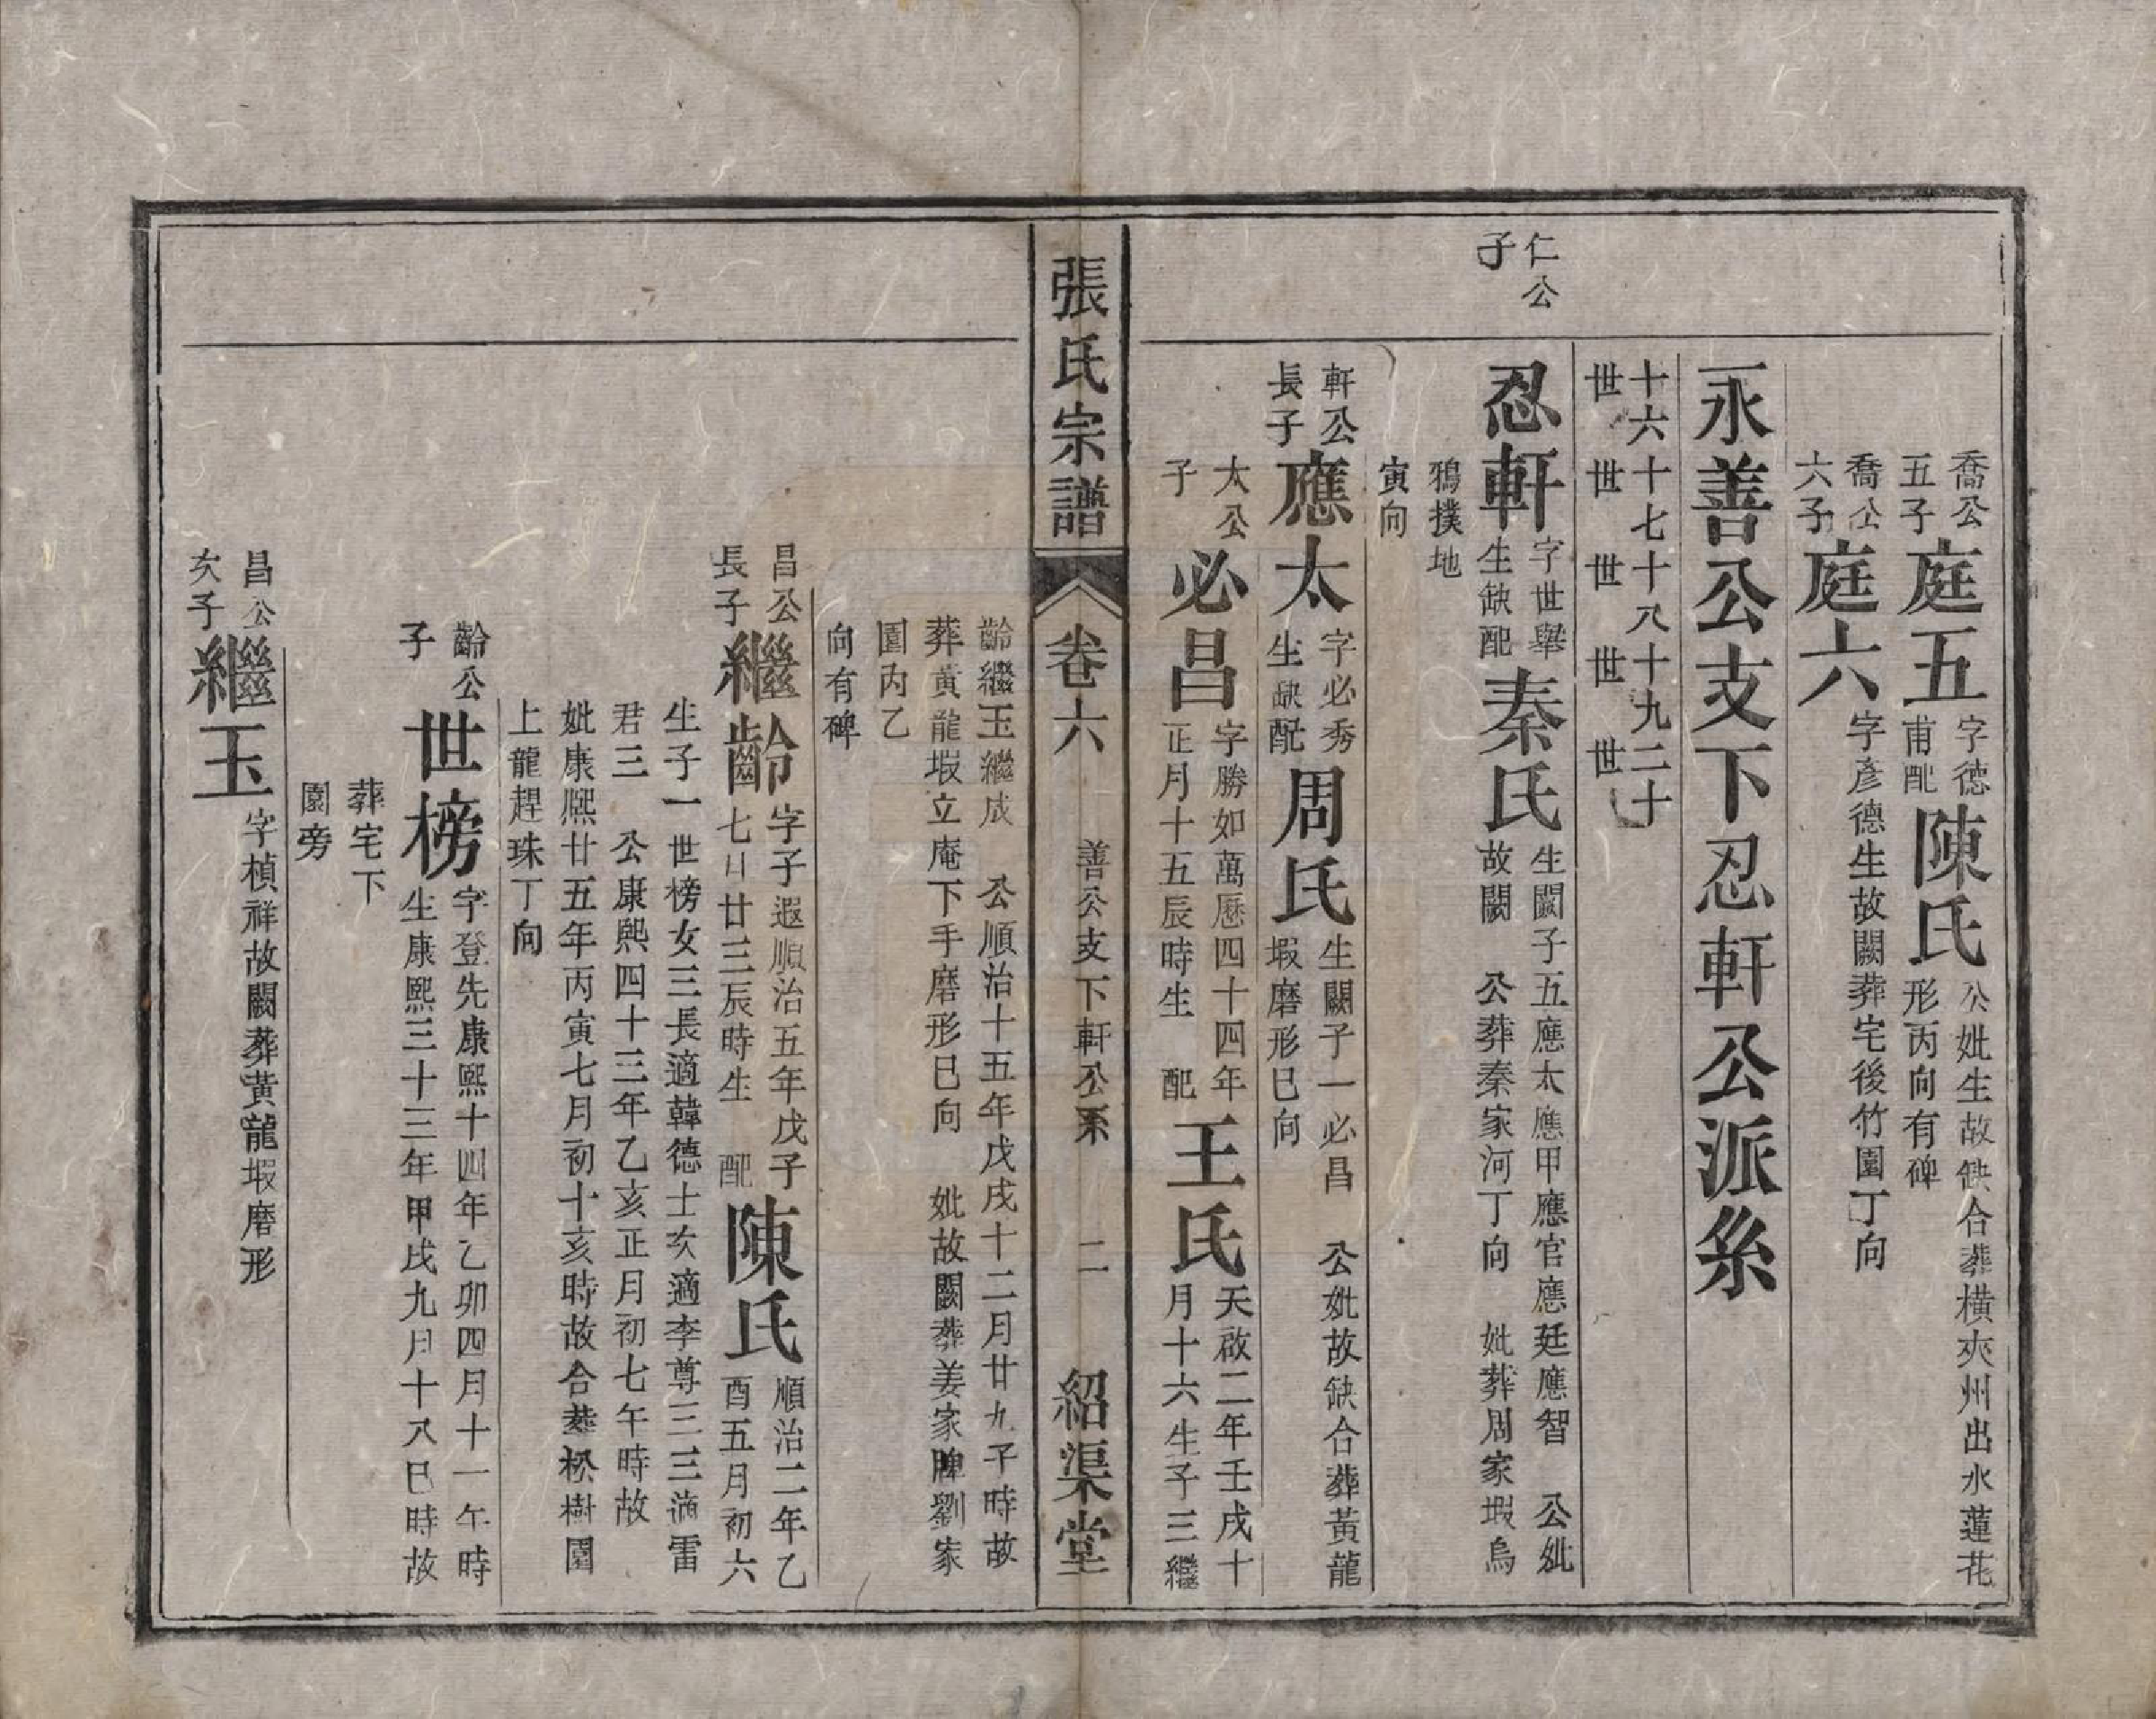 喬公
五子
庭五
字德
甫配
陳氏
公妣生故缺合葬橫夾州出水蓮花
形丙向有碑
喬公
六子
庭六
字彥德生故闕葬宅後竹園丁向
永善公支下忍軒公派糸
十六十七十八十九二十
世世世世世
仁公
子
忍軒
字世舉
生缺配
秦氏
生闕子五應太應甲應官應廷應智 公妣
故闕 公葬秦家河丁向 妣葬周家塅烏
鴉撲地
寅向
軒公
長子
應太
字必秀
生缺配
周氏
生闕子一必昌 公妣故缺合葬黃龍
塅磨形巳向
太公
子
必昌
字勝如萬厯四十四年
正月十五辰時生 配
王氏
天啟二年壬戌十
月十六生子三繼
張氏宗譜
卷六
善公支下軒公系
二
紹渠堂
齡繼玉繼成 公順治十五年戊戌十二月廿九子時故
葬黃龍塅立庵下手磨形巳向 妣故闕葬姜家脾劉家
園內乙
向有碑
昌公
長子
繼齡
字子遐順治五年戊子
七月廿三辰時生 配
陳氏
順治二年乙
酉五月初六
生子一世榜女三長適韓德士次適李尊三三適雷
君三 公康熙四十三年乙亥正月初七午時故
妣康熙廿五年丙寅七月初十亥時故合葬松樹園
上龍趕珠丁向
齡公
子
世榜
字登先康熙十四年乙卯四月十一午時
生康熙三十三年甲戌九月十八巳時故
葬宅下
園旁
昌公
次子
繼玉
字楨祥故闕葬黃龍塅磨形